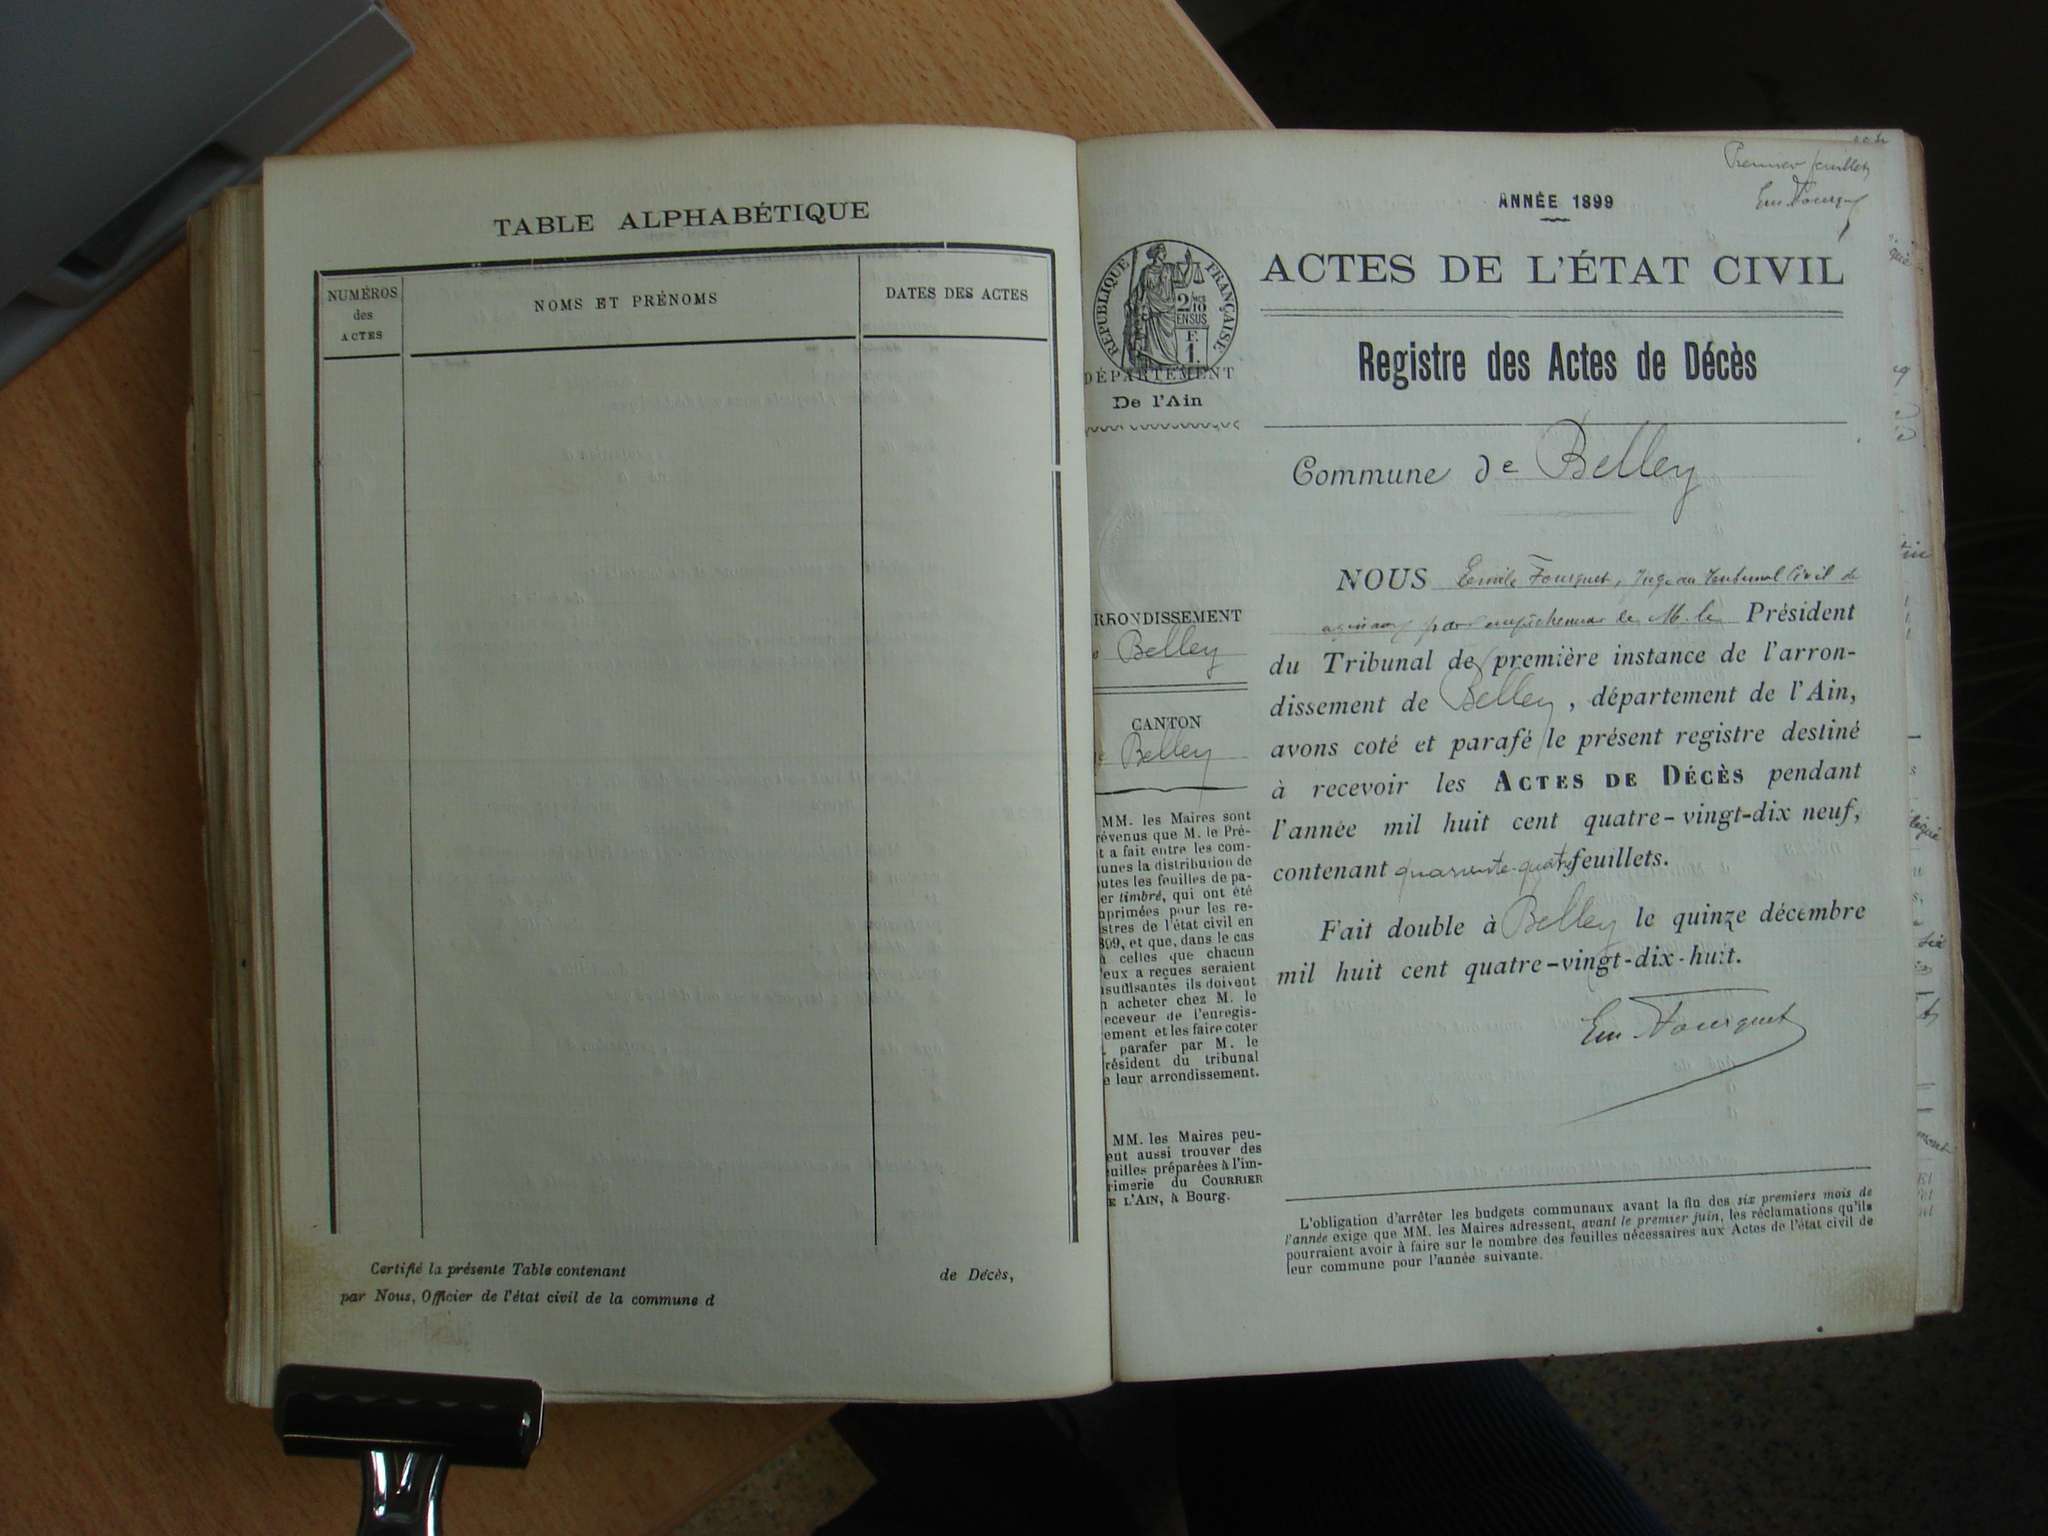 TABLE ALPHABÉTIQUE
NUMÉROS
des
ACTES
NOMS ET PRÉNOMS
DATES DES ACTES
Certifié la présente Table contenant de Décès,
par Nous, Officier de l'état civil de la commune d
Premier feuillet
Em. Fourquet
ANNÉE 1899
RÉPUBLIQUE FRANÇAISE
2/10
EN SUS
F.
1.
DÉPARTEMENT
De l'Ain
ACTES DE L'ÉTAT CIVIL
Registre des Actes de Décès
Commune de Belley
RRONDISSEMENT
Belley
CANTON
Belley
MM. les Maires sont
révenus que M. le Pré-
t a fait entre les com-
unes la distribution de
outes les feuilles de pa-
er timbré, qui ont été
nprimées pour les re-
stres de l'état civil en
899, et que, dans le cas
ù celles que chacun
'eux a reçues seraient
nsuffisantes ils doivent
n acheter chez M. le
eceveur de l'enregis-
ement et les faire coter
parafer par M. le
résident du tribunal
e leur arrondissement.
MM. les Maires peu-
ent aussi trouver des
euilles préparées à l'im-
rimerie du COURRIER
E L'AIN, à Bourg.
NOUS Emile Fourquet, Juge au Tribunal Civil de
agissant par empêchement de M. le Président
du Tribunal de première instance de l'arron-
dissement de Belley, département de l'Ain,
avons coté et parafé le présent registre destiné
à recevoir les ACTES DE DÉCÈS pendant
l'année mil huit cent quatre-vingt-dix neuf,
contenant quarante-quatre feuillets.
Fait double à Belley le quinze décembre
mil huit cent quatre-vingt-dix-huit.
Em. Fourquet
L'obligation d'arrêter les budgets communaux avant la fin des six premiers mois de
l'année exige que MM. les Maires adressent, avant le premier juin, les réclamations qu'ils
pourraient avoir à faire sur le nombre des feuilles nécessaires aux Actes de l'état civil de
leur commune pour l'année suivante.